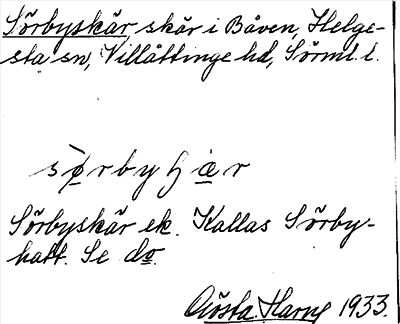 Sörbyskär, skär i Båven, Helge-
sta sn, Villåttinge hd, Sörml. l.
sörbyʃär
Sörbyskär ek. Kallas Sörby-
hatt. Se do.
Gösta Harng 1933.